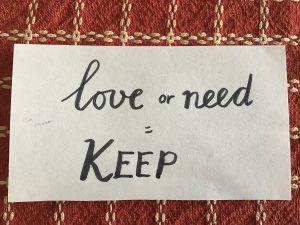 love or need
=
KEEP